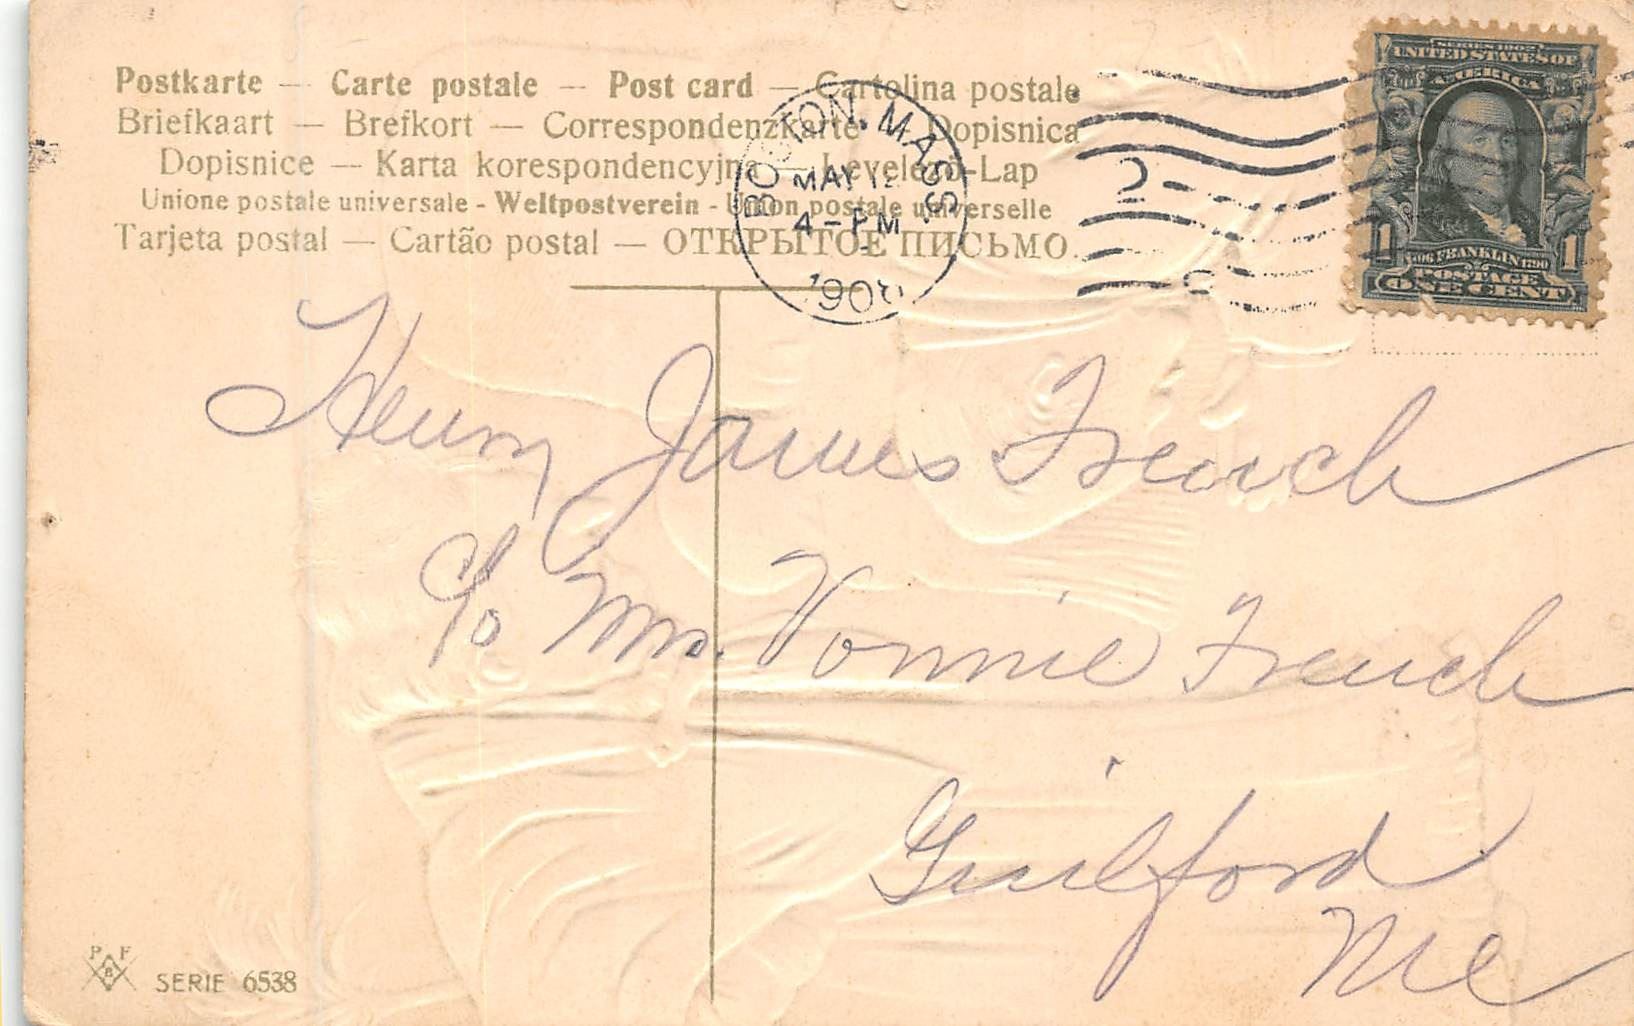 Postkarte — Carte postale — Post card — Cartolina postale
Briefkaart — Brefkort — Correspondenzkarte — Dopisnica
Dopisnice — Karta korespondencyjna — Levelező-Lap
Unione postale universale - Weltpostverein - Union postale universelle
Tarjeta postal — Cartão postal — ОТКРЫТОЕ ПИСЬМО.
BOSTON, MASS.
MAY
4 - PM
SERIES 1902
UNITED STATES OF
AMERICA
1706 FRANKLIN 1790
1 POSTAGE 1
ONE CENT
Henry James French
c/o Mrs. Vonnie French
Guilford
Me
P F
B
SERIE 6538